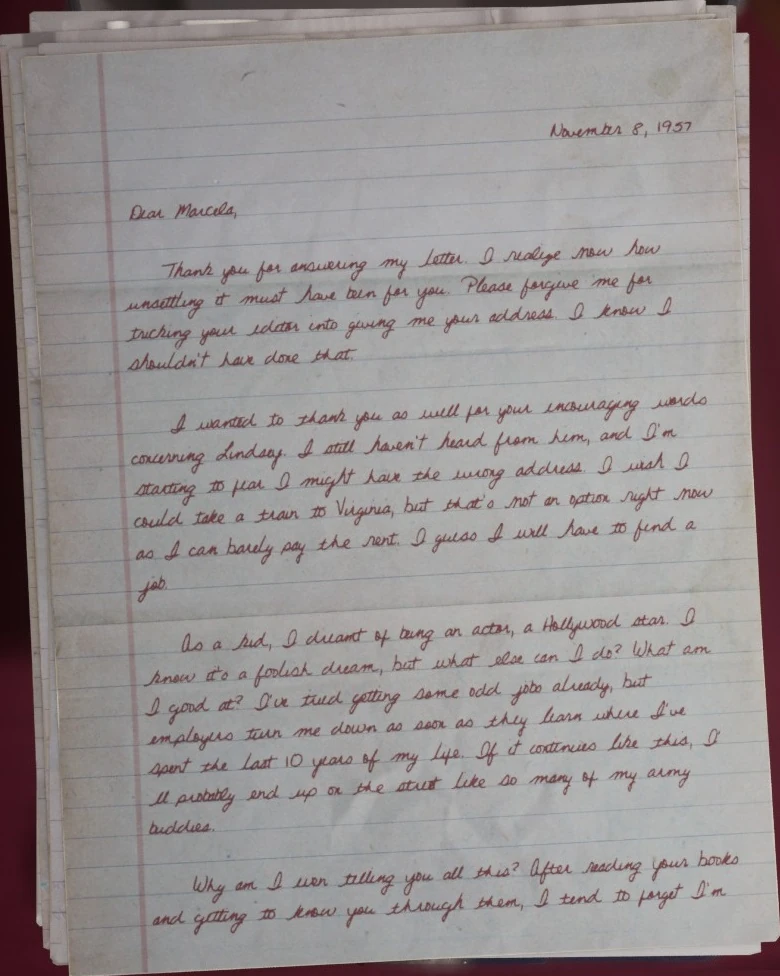 November 8, 1957
Dear Marcela,
Thank you for answering my letter. I realize now how
unsettling it must have been for you. Please forgive me for
tricking your editor into giving me your address. I know I
shouldn't have done that.
I wanted to thank you as well for your encouraging words
concerning Lindsay. I still haven't heard from him, and I'm
starting to fear I might have the wrong address. I wish I
could take a train to Virginia, but that's not an option right now
as I can barely pay the rent. I guess I will have to find a
job.
As a kid, I dreamt of being an actor, a Hollywood star. I
know it's a foolish dream, but what else can I do? What am
I good at? I've tried getting some odd jobs already, but
employers turn me down as soon as they learn where I've
spent the last 10 years of my life. If it continues like this, I'
ll probably end up on the street like so many of my army
buddies.
Why am I even telling you all this? After reading your books
and getting to know you through them, I tend to forget I'm